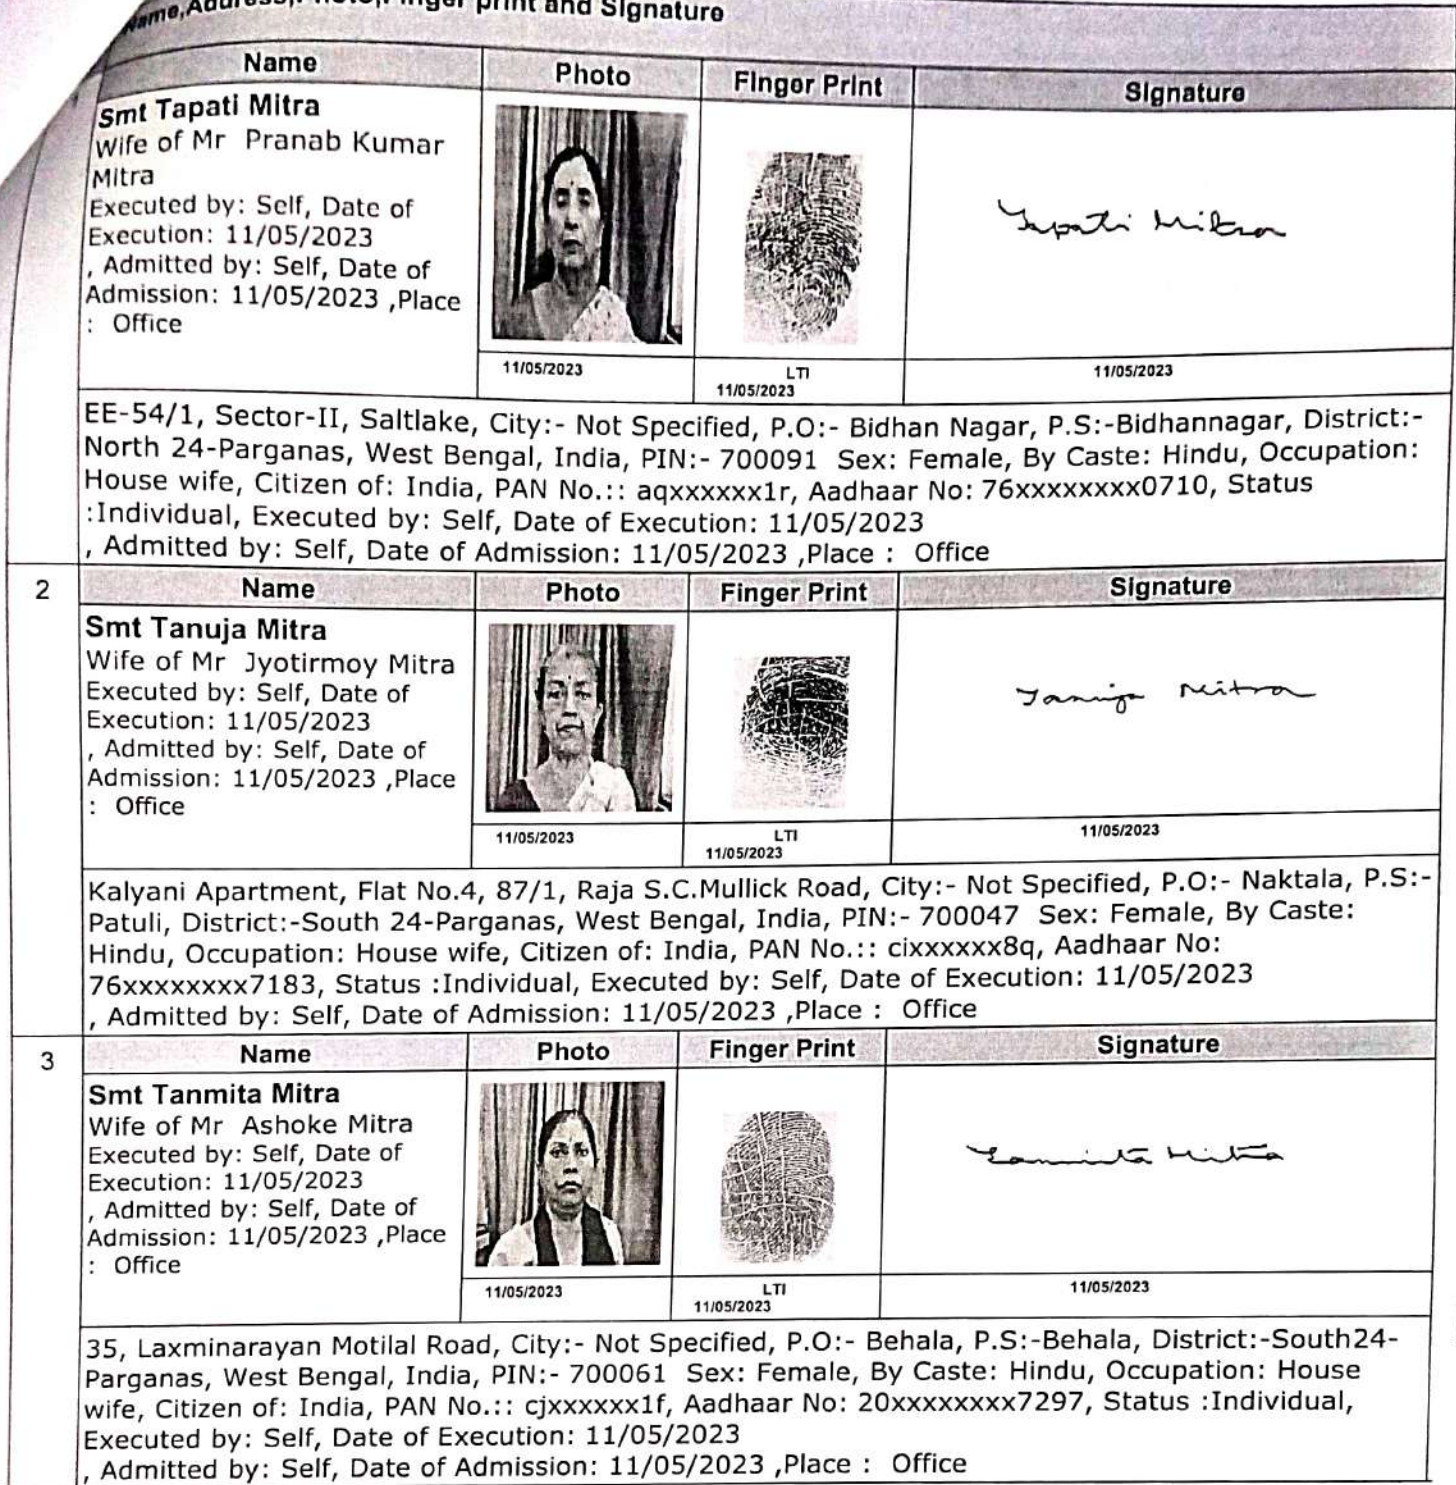 Name,Address,Photo,Finger print and Signature
Name Photo Finger Print Signature
Smt Tapati Mitra
Wife of Mr Pranab Kumar
Mitra
Executed by: Self, Date of
Execution: 11/05/2023
, Admitted by: Self, Date of
Admission: 11/05/2023 ,Place
: Office
Tapati Mitra
11/05/2023 LTI 11/05/2023
11/05/2023
EE-54/1, Sector-II, Saltlake, City:- Not Specified, P.O:- Bidhan Nagar, P.S:-Bidhannagar, District:-
North 24-Parganas, West Bengal, India, PIN:- 700091 Sex: Female, By Caste: Hindu, Occupation:
House wife, Citizen of: India, PAN No.:: aqxxxxxx1r, Aadhaar No: 76xxxxxxxx0710, Status
:Individual, Executed by: Self, Date of Execution: 11/05/2023
, Admitted by: Self, Date of Admission: 11/05/2023 ,Place : Office
2 Name Photo Finger Print Signature
Smt Tanuja Mitra
Wife of Mr Jyotirmoy Mitra
Executed by: Self, Date of
Execution: 11/05/2023
, Admitted by: Self, Date of
Admission: 11/05/2023 ,Place
: Office
Tanuja Mitra
11/05/2023 LTI 11/05/2023
11/05/2023
Kalyani Apartment, Flat No.4, 87/1, Raja S.C.Mullick Road, City:- Not Specified, P.O:- Naktala, P.S:-
Patuli, District:-South 24-Parganas, West Bengal, India, PIN:- 700047 Sex: Female, By Caste:
Hindu, Occupation: House wife, Citizen of: India, PAN No.:: cixxxxxx8q, Aadhaar No:
76xxxxxxxx7183, Status :Individual, Executed by: Self, Date of Execution: 11/05/2023
, Admitted by: Self, Date of Admission: 11/05/2023 ,Place : Office
3 Name Photo Finger Print Signature
Smt Tanmita Mitra
Wife of Mr Ashoke Mitra
Executed by: Self, Date of
Execution: 11/05/2023
, Admitted by: Self, Date of
Admission: 11/05/2023 ,Place
: Office
Tanmita Mitra
11/05/2023 LTI 11/05/2023
11/05/2023
35, Laxminarayan Motilal Road, City:- Not Specified, P.O:- Behala, P.S:-Behala, District:-South24-
Parganas, West Bengal, India, PIN:- 700061 Sex: Female, By Caste: Hindu, Occupation: House
wife, Citizen of: India, PAN No.:: cjxxxxxx1f, Aadhaar No: 20xxxxxxxx7297, Status :Individual,
Executed by: Self, Date of Execution: 11/05/2023
, Admitted by: Self, Date of Admission: 11/05/2023 ,Place : Office